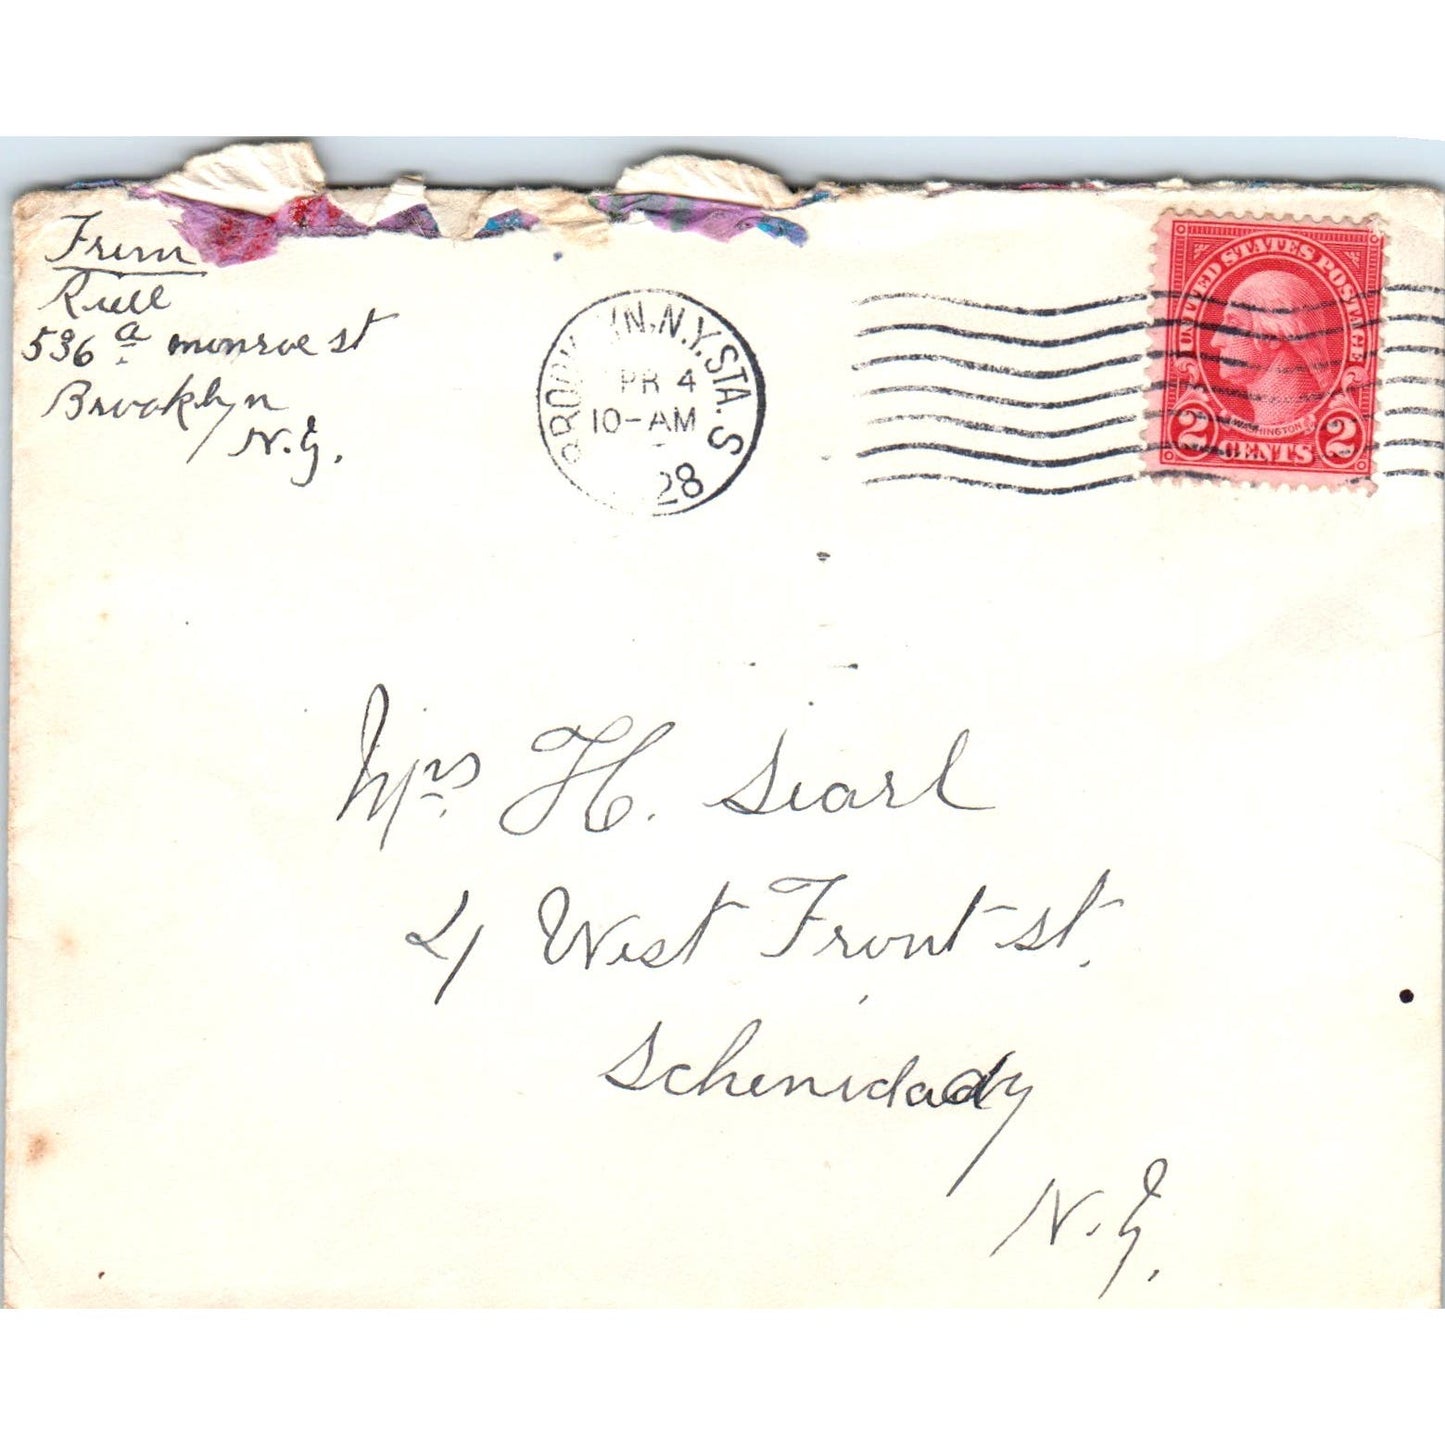 From
Rull
536 a monroe st
Brooklyn
N.Y.
BROOKLYN, N.Y. STA. S
APR 4
10-AM
28
UNITED STATES POSTAGE
WASHINGTON
2 CENTS 2
Mrs. H. Siarl
4 West Front st.
Schenidady
N.Y.